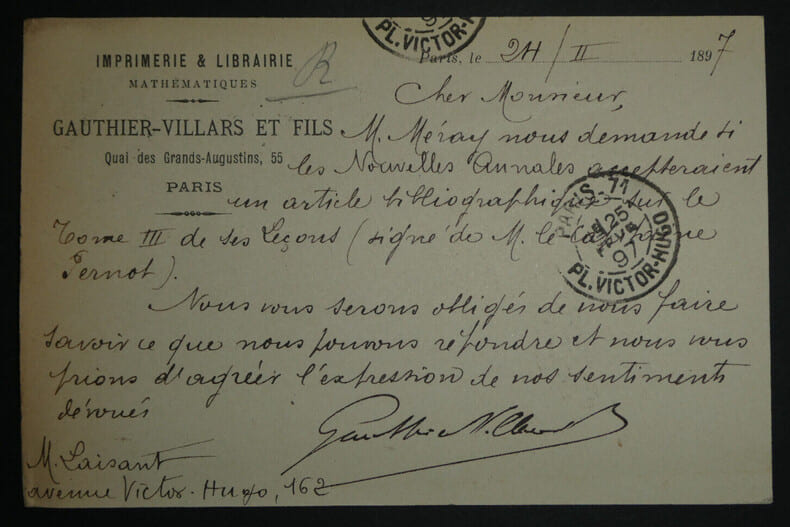 IMPRIMERIE & LIBRAIRIE
MATHÉMATIQUES
GAUTHIER-VILLARS ET FILS
Quai des Grands-Augustins, 55
PARIS
R
97
PL. VICTOR-H
Paris, le 24/II 1897
Cher Monsieur,
M. Méray nous demande si
les Nouvelles Annales accepteraient
un article bibliographique sur le
Tome III de ses Leçons (signé de M. le Capitaine
Pernot).
Nous vous serons obligés de nous faire
savoir ce que nous pouvons répondre et nous vous
prions d'agréer l'expression de nos sentiments
dévoués
Gauthier-Villars
M. Laisant
avenue Victor-Hugo, 162
PARIS-71
25
FEVR
97
PL. VICTOR-HUGO